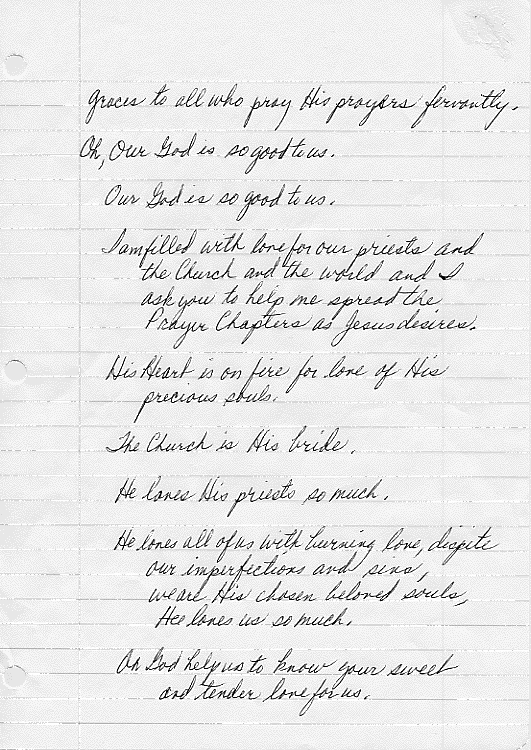 graces to all who pray His prayers fervantly.
Oh, Our God is so good to us.
Our God is so good to us.
I am filled with love for our priests and
the Church and the world and I
ask you to help me spread the
Prayer Chapters as Jesus desires.
His Heart is on fire for love of His
precious souls.
The Church is His bride.
He loves His priests so much.
He loves all of us with burning love, dispite
our imperfictions and sins,
we are His chosen beloved souls,
He loves us so much.
Oh God help us to know your sweet
and tender love for us.